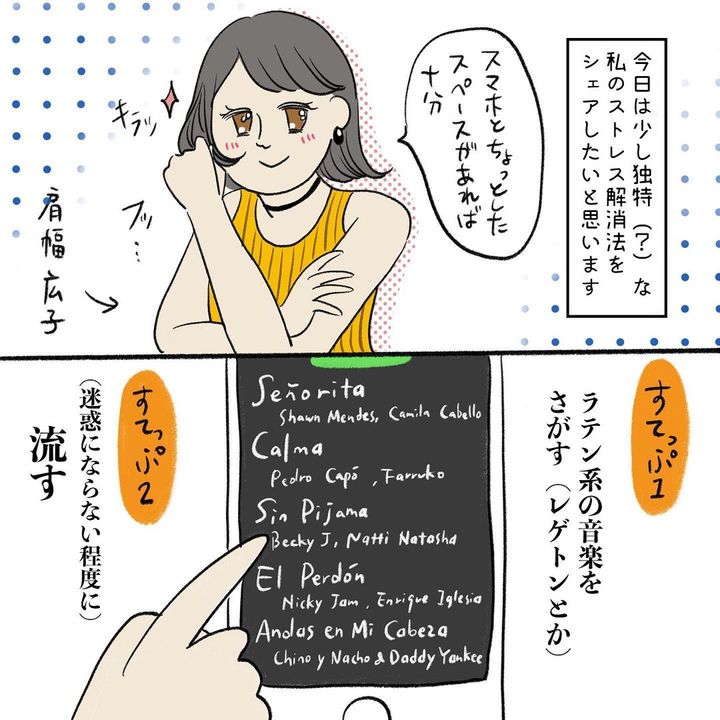 今日は少し独特(?)な
私のストレス解消法を
シェアしたいと思います
スマホとちょっとした
スペースがあれば
十分
キラッ
フッ…
肩幅広子
すてっぷ1
ラテン系の音楽を
さがす(レゲトンとか)
Señorita
Shawn Mendes, Camila Cabello
Calma
Pedro Capó, Farruko
Sin Pijama
Becky J, Natti Natasha
El Perdón
Nicky Jam, Enrique Iglesia
Andas en Mi Cabeza
Chino y Nacho & Daddy Yankee
すてっぷ2
(迷惑にならない程度に)
流す